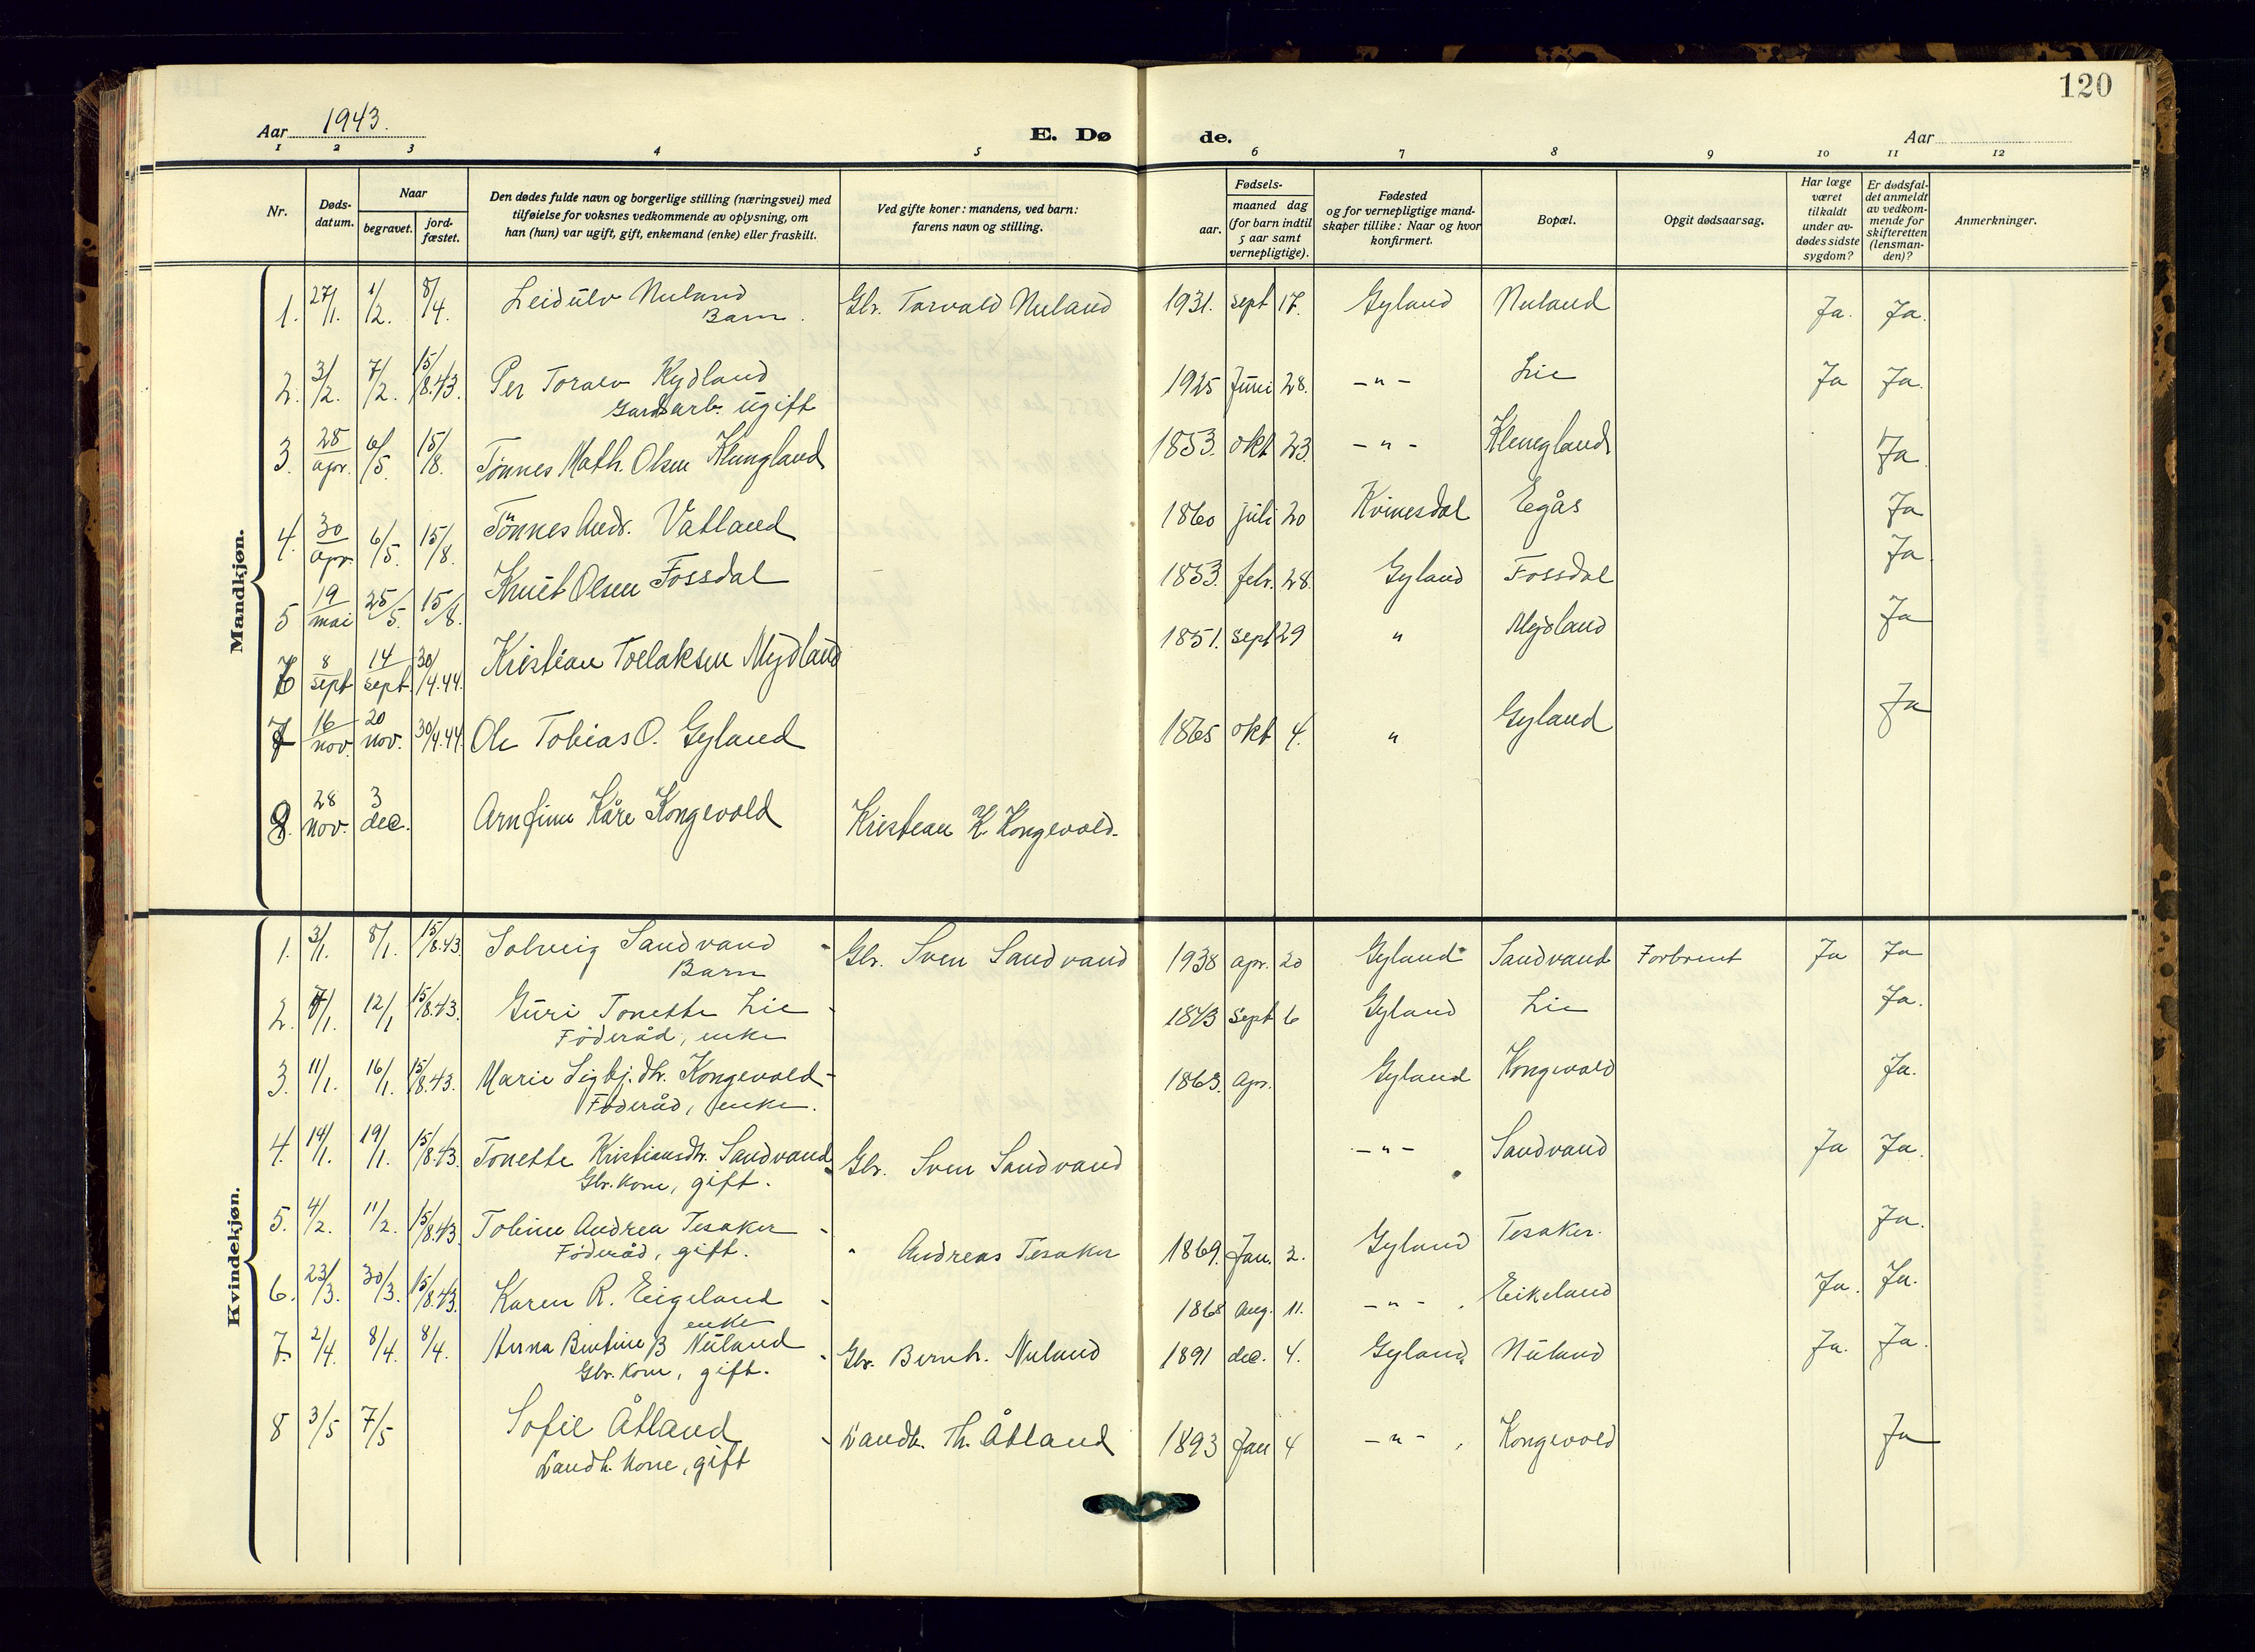 120
Aar 1943.
E. Dø de.
Aar
1 2 3 4 5 6 7 8 9 10 11 12
Nr.
Døds-
datum.
Naar
begravet.
jord-
fæstet.
Den dødes fulde navn og borgerlige stilling (næringsvei) med
tilføielse for voksnes vedkommende av oplysning, om
han (hun) var ugift, gift, enkemand (enke) eller fraskilt.
Ved gifte koner: mandens, ved barn:
farens navn og stilling.
Fødsels-
aar.
maaned dag
(for barn indtil
5 aar samt
vernepligtige).
Fødested
og for vernepligtige mand-
skaper tillike: Naar og hvor
konfirmert.
Bopæl.
Opgit dødsaarsag.
Har læge
været
tilkaldt
under av-
dødes sidste
sygdom?
Er dødsfal-
det anmeldt
av vedkom-
mende for
skifteretten
(lensman-
den)?
Anmerkninger.
Mandkjøn.
1. 27/1. 1/2. 8/4. Leidulv Nuland Gbr. Torvald Nuland 1931. sept 17. Gyland Nuland Ja. Ja.
Barn.
2. 3/2. 7/2. 15/8.43. Per Toralv Kydland 1925 Juni 28. -"- Lie Ja Ja.
Gardsarb. ugift
3. 28/apr. 6/5. 15/8. Tønnes Math. Olsen Klungland 1853. okt 23. -"- Klungland Ja
4. 30/apr. 6/5. 15/8. Tønnes Andr. Vatland 1860 juli 20 Kvinesdal Egås Ja
5 19/mai 25/5. 15/8. Knut Olsen Fossdal 1853. febr. 28. Gyland Fossdal Ja
6 8/sept 14/sept. 30/4.44. Kristian Tollaksen Mydland 1851. sept 29 " Mydland Ja
7 16/nov. 20 nov. 30/4.44. Ole Tobias O. Gyland 1865 okt 4. " Gyland Ja
8. 28 nov. 3 dec. Arnfinn Kåre Kongevold Kristian K. Kongevold.
Kvindekjøn.
1. 3/1. 8/1. 15/8.43. Solveig Sandvand - Gbr. Sven Sandvand 1938 apr. 20 Gyland Sandvand Forbrent Ja Ja
Barn
2. 7/1. 12/1 15/8.43. Guri Tonette Lie - 1843 sept 6 Gyland Lie Ja.
Føderåd, enke
3. 11/1. 16/1. 15/8.43. Marie Sigbj.dtr. Kongevold - 1863. apr. Gyland Kongevold Ja.
Føderåd, enke.
4. 14/1. 19/1. 15/8.43. Tonette Kristiansdtr. Sandvand - Gbr. Sven Sandvand -"- Sandvand Ja Ja.
Gbr. kone, gift.
5. 4/2. 11/2. 15/8.43. Tobine Andrea Tesaker - " Andreas Tesaker 1869. Jan. 2. Gyland Tesaker. Ja.
Føderåd, gift.
6. 23/3. 30/3. 15/8.43. Karen R. Eigeland - 1868 Aug. 11. -"- Eikeland Ja. Ja.
enke
7. 2/4. 8/4. 8/4. Anna Bertine B Nuland - Gbr. Bernh. Nuland 1891 dec. 4. Gyland Nuland Ja. Ja.
Gbr. kone, gift.
8 3/5 7/5 Sofie Åtland - Landh. Th. Åtland 1893 Jan 4 -"- Kongevold Ja
Landh. kone, gift